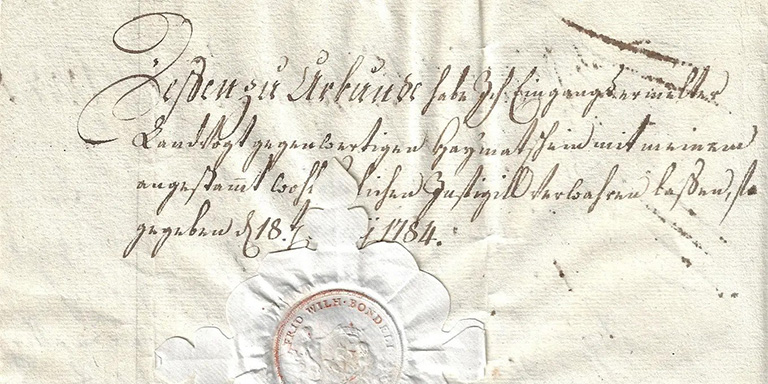 Dessen zu Urkunde habe Ich Eingangs ermelter
Landvogt gegenwertigen Haymatschein mit meinem
angestammt wohl lichen Insigill verwahren lassen, so
gegeben d 18. 1784.
FRID WILH · BONDELI